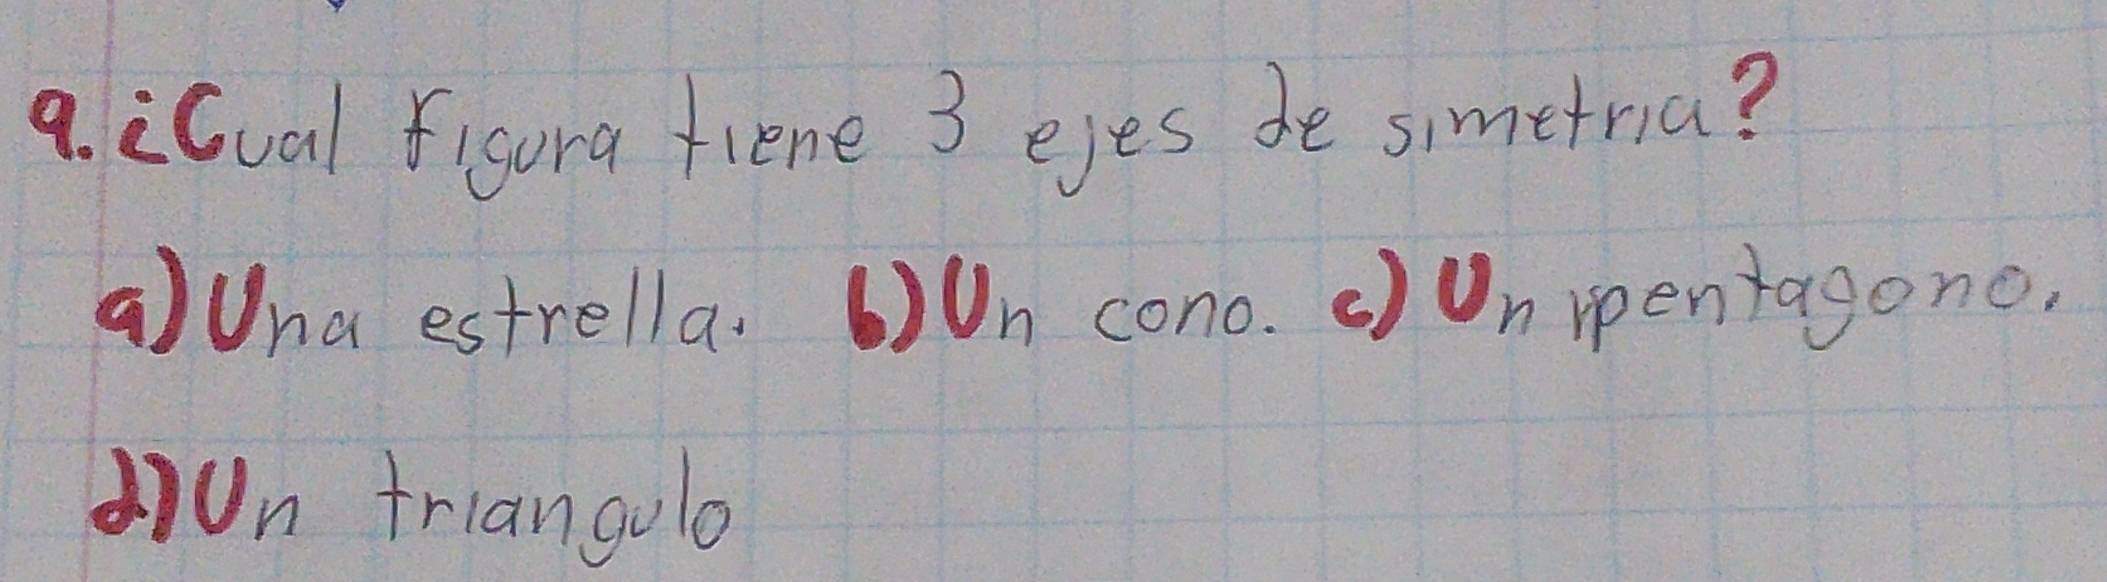 9. ¿Cual figura tiene 3 ejes de simetria?
a) Una estrella. b) Un cono. c) Un pentagono.
d) Un triangulo